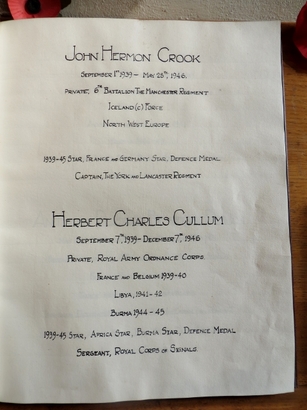 John Hermon Crook
September 1st 1939 – May 28th, 1946.
Private, 6th Battalion The Manchester Regiment
Iceland (C) Force
North West Europe
1939-45 Star, France and Germany Star, Defence Medal
Captain, The York and Lancaster Regiment
Herbert Charles Cullum
September 7th, 1939 – December 7th, 1946
Private, Royal Army Ordnance Corps.
France and Belgium 1939-40
Libya, 1941-42
Burma 1944-45
1939-45 Star, Africa Star, Burma Star, Defence Medal
Sergeant, Royal Corps of Signals.